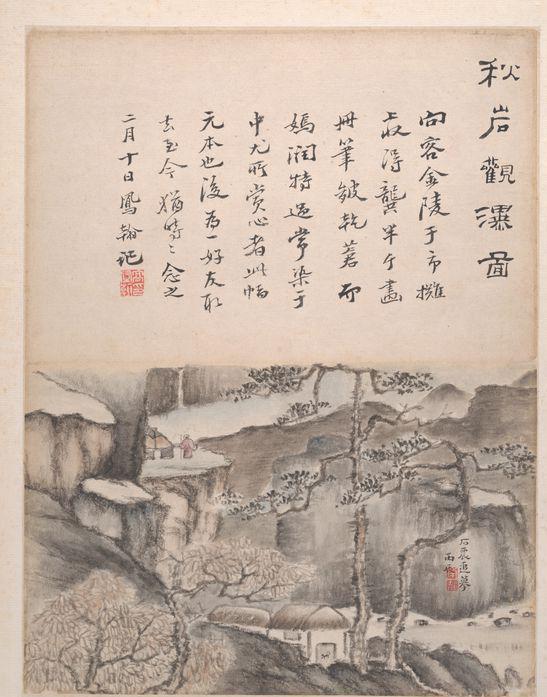 秋岩觀瀑圖
向客金陵于市攤
上收得龔半千畫
冊筆皴乾蒼而
嫣潤特過常染于
中尤所賞心者此幀
元本也後為一好友取
去至今猶時〻念之
二月十日鳳翰記
追摹